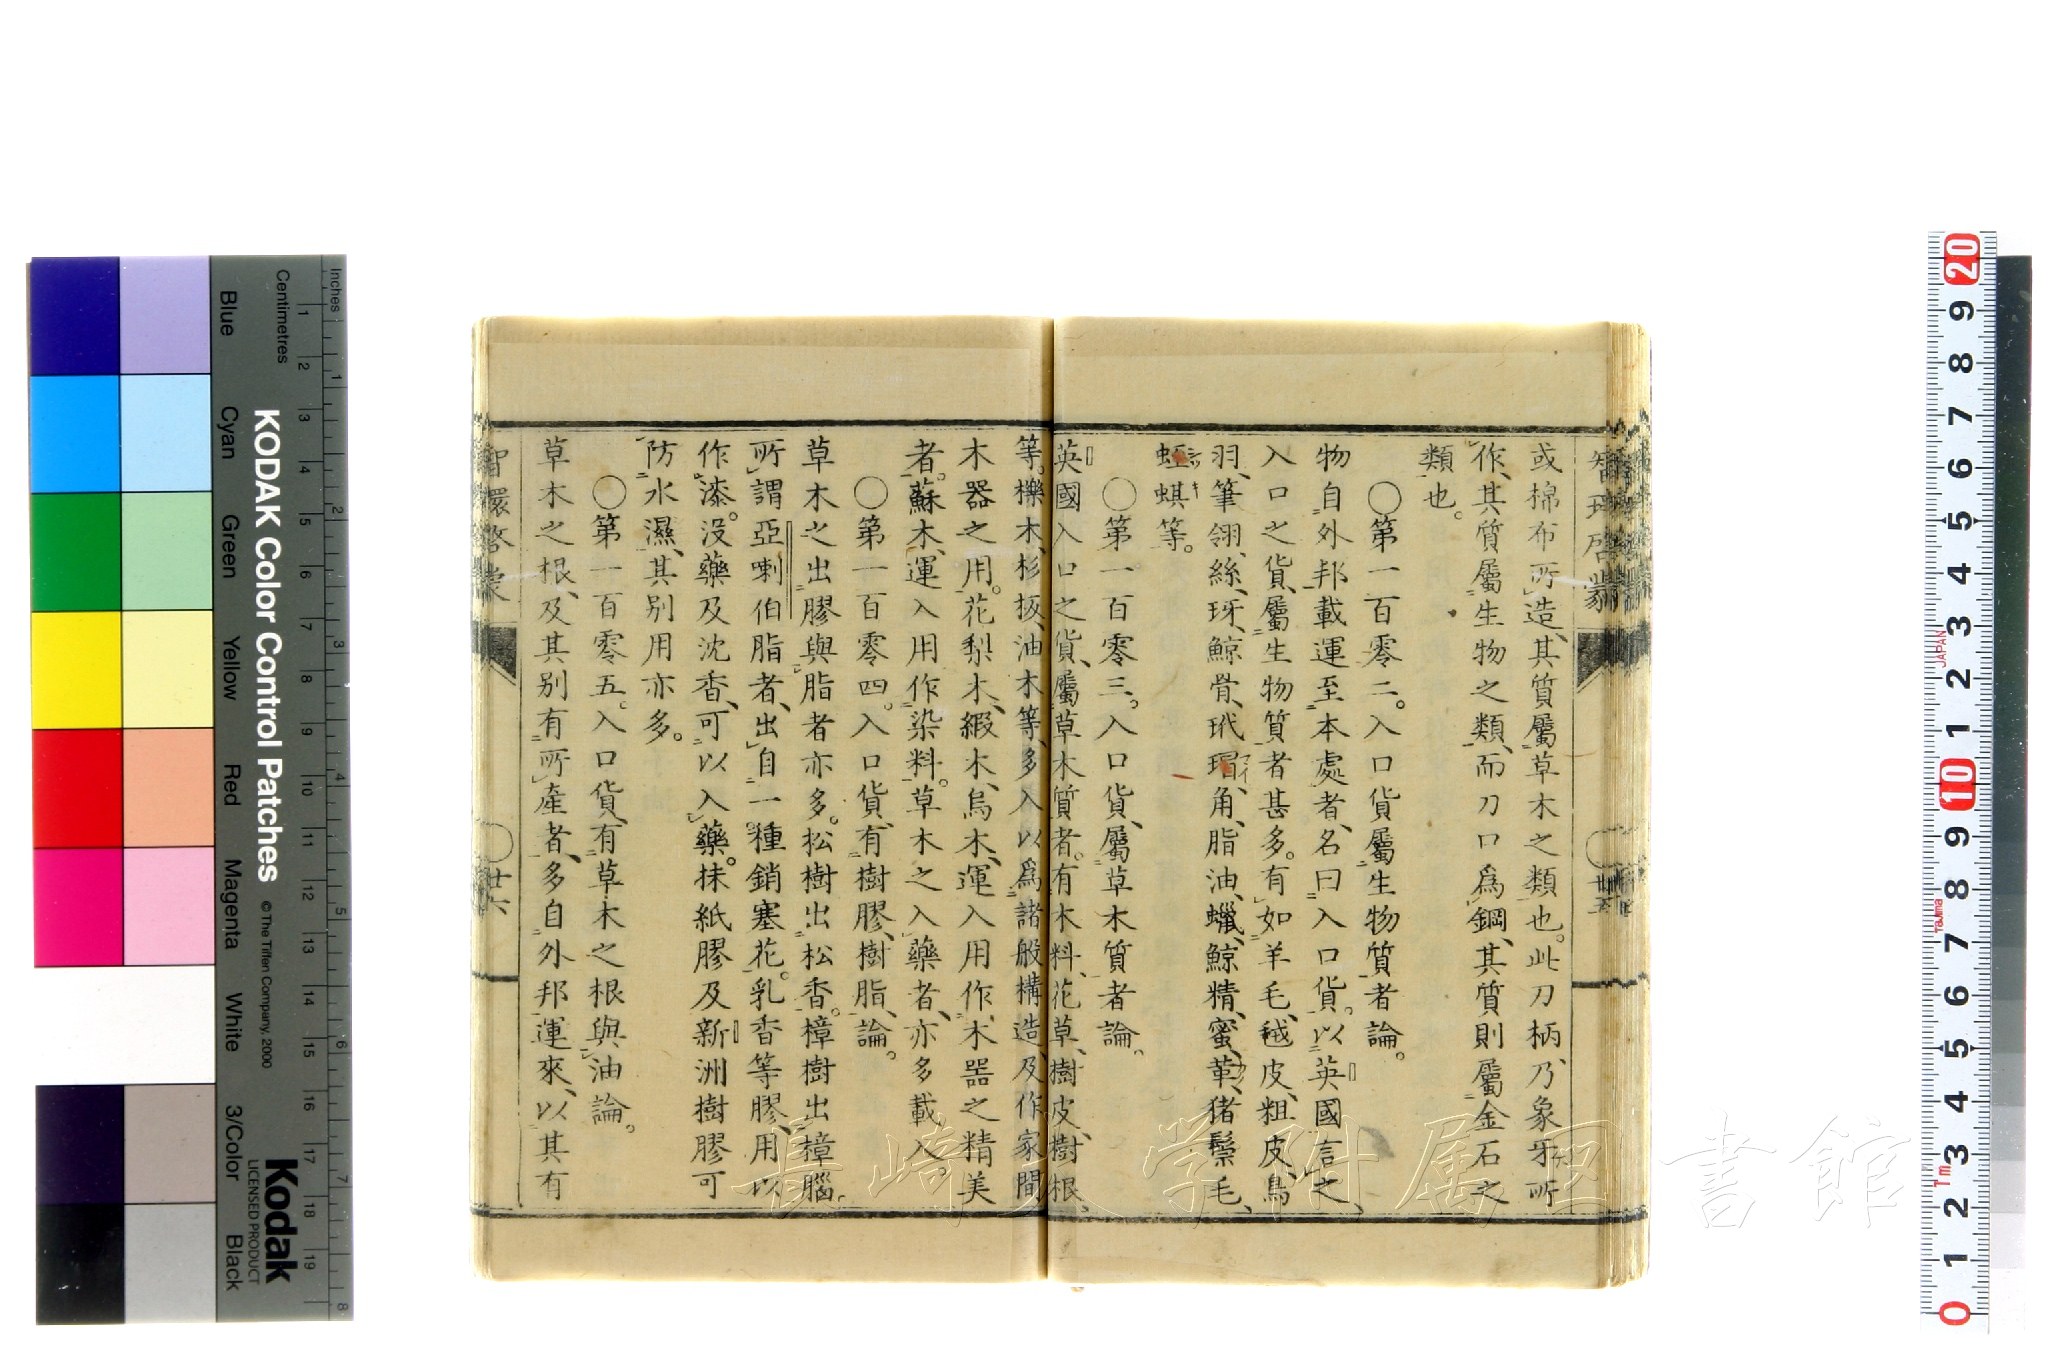 智環啓蒙
或棉布所造、其質屬草木之類也。此刀柄、乃象牙所
作、其質屬生物之類、而刀口爲鋼、其質則屬金石之
類也。
○第一百零二。入口貨屬生物質者論。
物自外邦載運至本處者、名曰入口貨。以英國言之、
入口之貨、屬生物質者甚多。有如羊毛、毧皮、粗皮、鳥
羽、筆翎、絲、玡、鯨骨、玳瑁、角、脂油、蠟、鯨精、蜜、革、猪鬃毛、
蛭蜞等。
○第一百零三。入口貨、屬草木質者論。
英國入口之貨、屬草木質者。有木料、花草、樹皮、樹根、
等。櫟木、杉板、油木等、多入以爲諸般構造、及作家間
木器之用。花梨木、緞木、烏木、運入用作木器之精美
者。蘇木、運入用作染料。草木之入藥者、亦多載入。
○第一百零四。入口貨、有樹膠、樹脂、論。
草木之出膠與脂者亦多。松樹出松香。樟樹出樟腦。
所謂亞喇伯脂者、出自一種銷塞花。乳香等膠、用以
作漆。沒藥及沈香、可以入藥。抹紙膠及新洲樹膠可
防水濕、其別用亦多。
○第一百零五。入口貨、有草木之根與油論。
草木之根、及其別有所產者、多自外邦運來、以其有
智環啓蒙
廿六
KODAK Color Control Patches
© The Tiffen Company, 2000
Kodak
LICENSED PRODUCT
Inches
Centimetres
Blue
Cyan
Green
Yellow
Red
Magenta
White
3/Color
Black
JAPAN
Tajima
長崎大学附属図書館